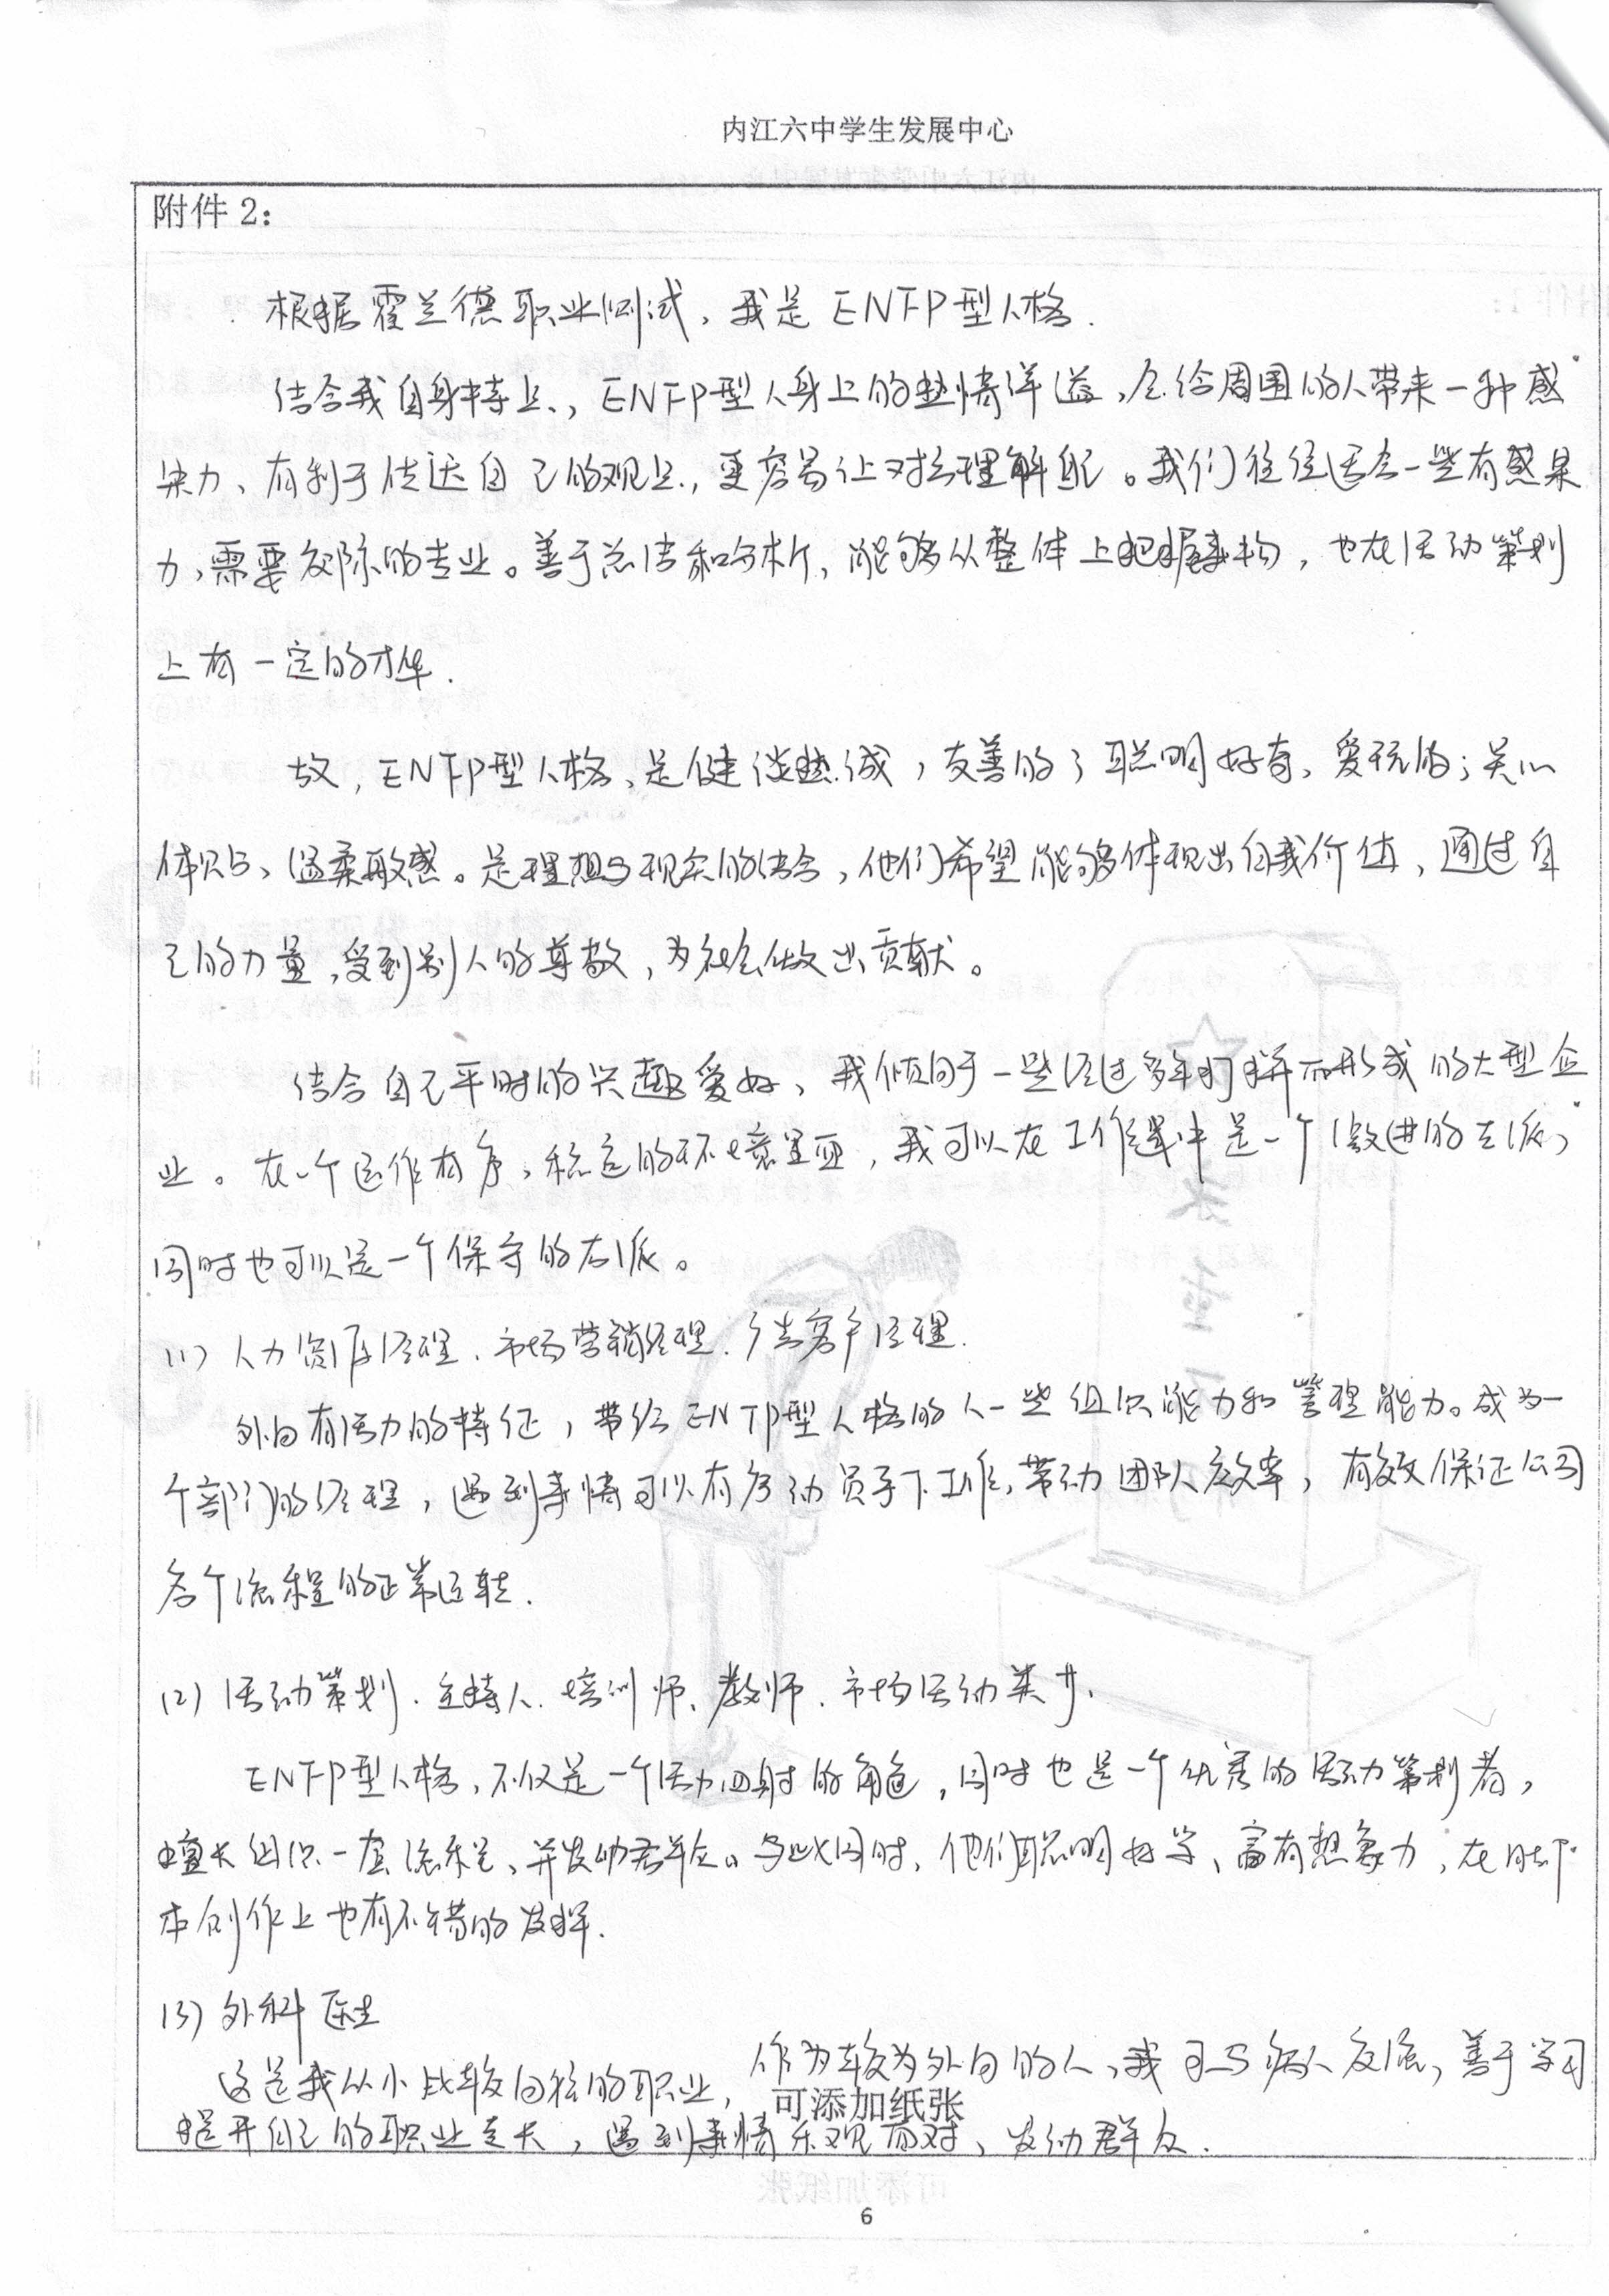 内江六中学生发展中心
附件 2：
根据霍兰德职业测试，我是ENFP型人格.
结合我自身特点，ENFP型人身上的热情洋溢，会给周围的人带来一种感
染力、有利于传达自己的观点，更容易让对方理解。我们往往适合一些有感染
力，需要交际的专业。善于总结和分析，能够从整体上把握事物，也在活动策划
上有一定的才华.
故，ENFP型人格、是健谈热诚，友善的；聪明好奇、爱玩的；关心
体贴、温柔敏感。是理想与现实的结合，他们希望能够体现出自我价值、通过自
己的力量，受到别人的尊敬，为社会做出贡献。
结合自己平时的兴趣爱好、我倾向于一些经过多年打拼而形成的大型企
业。在一个运作有序，稳定的环境里面，我可以在工作中是一个激进的左派，
同时也可以是一个保守的右派。
(1) 人力资源经理、市场营销经理.广告客户经理.
外向有活力的特征，带给ENFP型人格的人一些组织能力和管理能力。成为一
个部门的经理，遇到事情可以有序动员手下工作，带动团队效率，有效保证公司
各个流程的正常运转.
(2) 活动策划.主持人.培训师、教师.市场活动类.
ENFP型人格，不仅是一个活力四射的角色，同时也是一个优秀的活动策划者，
擅长组织一套流程、并发动群众。与此同时，他们聪明好学、富有想象力，在
本创作上也有不错的发挥.
(3) 外科医生
这是我从小比较向往的职业，作为较为外向的人、我可与病人交流，善于学习
提升自己的职业专长，遇到事情乐观面对、发动群众.
可添加纸张
6